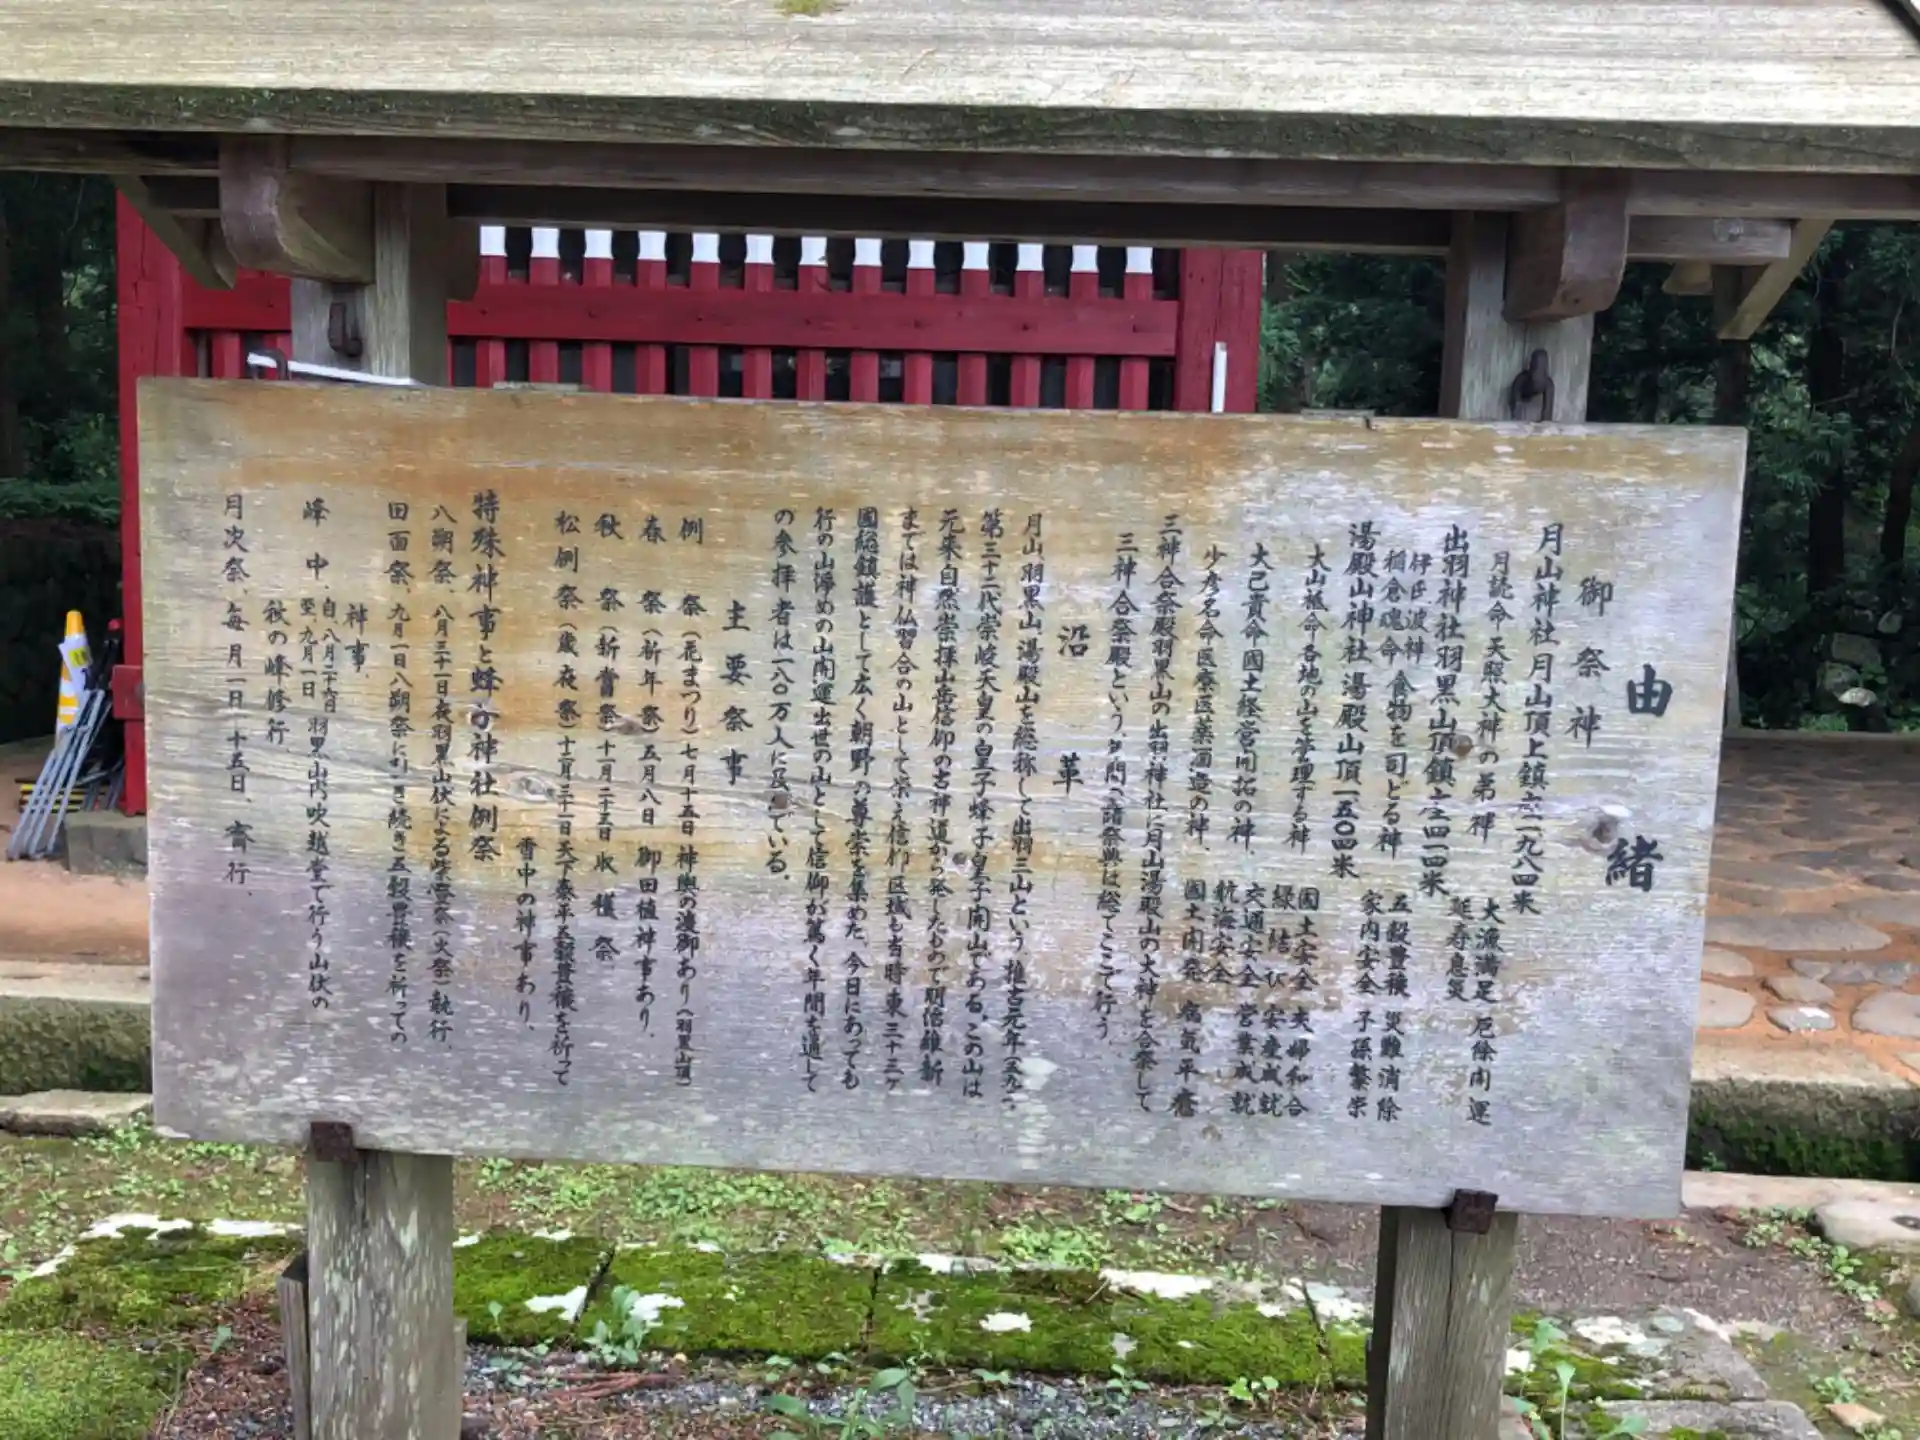 由緒
御祭神
月山神社月山頂上鎮座一九八四米
月読命 天照大神の弟神 大漁満足 厄除開運
延寿息災
出羽神社羽黒山頂鎮之四一四米
伊氐波神
稲倉魂命 食物を司どる神 五穀豊穣 災難消除
家内安全 子孫繁栄
湯殿山神社湯殿山頂一五〇四米
大山祗命 各地の山を管理する神 国土安全 夫婦和合
縁結び 安産成就
大己貴命 國土経営開拓の神、 交通安全 営業成就
航海安全
少彦名命 医療医薬酒造の神、 國土開発 病気平癒
三神合祭殿羽黒山の出羽神社に月山湯殿山の大神を合祭して
三神合祭殿という、年間の諸祭典は総てここで行う、
沿革
月山、羽黒山、湯殿山を総称して出羽三山という、推古元年(五九一、
第三十二代崇峻天皇の皇子蜂子皇子開山である。この山は
元来自然崇拝山岳信仰の古神道から発したもので明治維新
までは神仏習合の山として栄え信仰区域も当時東三十三ヶ
國総鎮護として広く朝野の尊崇を集めた、今日にあっても
行の山浄めの山開運出世の山として信仰が篤く年間を通して
の参拝者は一八〇万人に及んでいる。
主要祭事
例祭(花まつり)七月十五日 神輿の渡御あり(羽黒山頂)
春祭(祈年祭)五月八日 御田植神事あり、
秋祭(新嘗祭)十一月二十三日 収穫祭
松例祭(歳夜祭)十二月三十一日 天下泰平五穀豊穣を祈って
雪中の神事あり、
特殊神事と蜂子神社例祭
八朔祭、八月三十一日夜羽黒山伏による柴燈祭(火祭)執行、
田面祭、九月一日八朔祭に引き続き五穀豊穣を祈っての
神事、
峰中、自、八月二十六日 至、九月一日 羽黒山内吹越堂で行う山伏の
秋の峰修行、
月次祭、毎月一日、十五日、斎行、